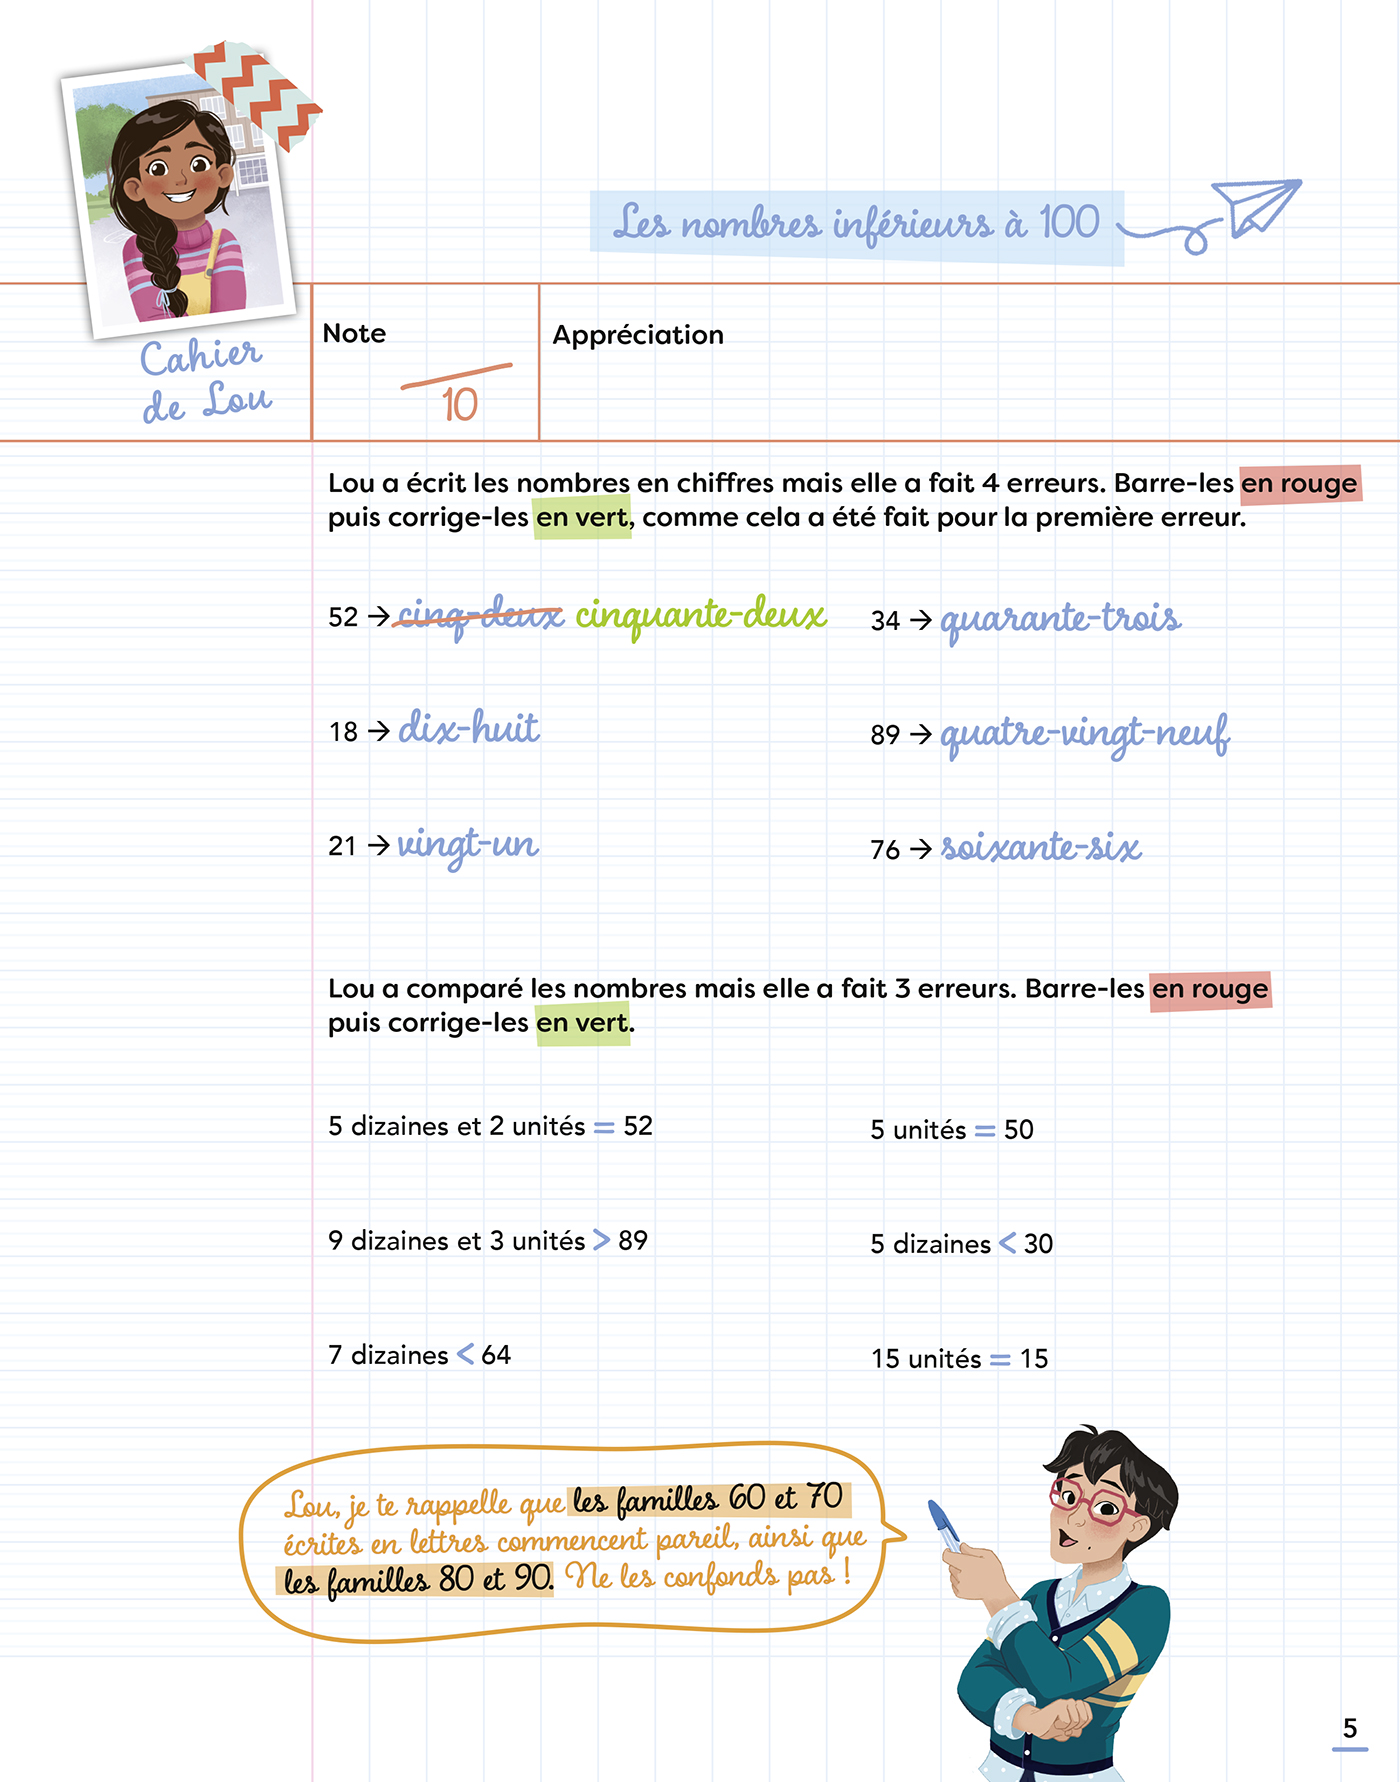 Les nombres inférieurs à 100
Cahier
de Lou
Note
10
Appréciation
Lou a écrit les nombres en chiffres mais elle a fait 4 erreurs. Barre-les en rouge
puis corrige-les en vert, comme cela a été fait pour la première erreur.
52 → cinq-deux cinquante-deux
34 → quarante-trois
18 → dix-huit
89 → quatre-vingt-neuf
21 → vingt-un
76 → soixante-six
Lou a comparé les nombres mais elle a fait 3 erreurs. Barre-les en rouge
puis corrige-les en vert.
5 dizaines et 2 unités = 52
5 unités = 50
9 dizaines et 3 unités > 89
5 dizaines < 30
7 dizaines < 64
15 unités = 15
Lou, je te rappelle que les familles 60 et 70
écrites en lettres commencent pareil, ainsi que
les familles 80 et 90. Ne les confonds pas !
5